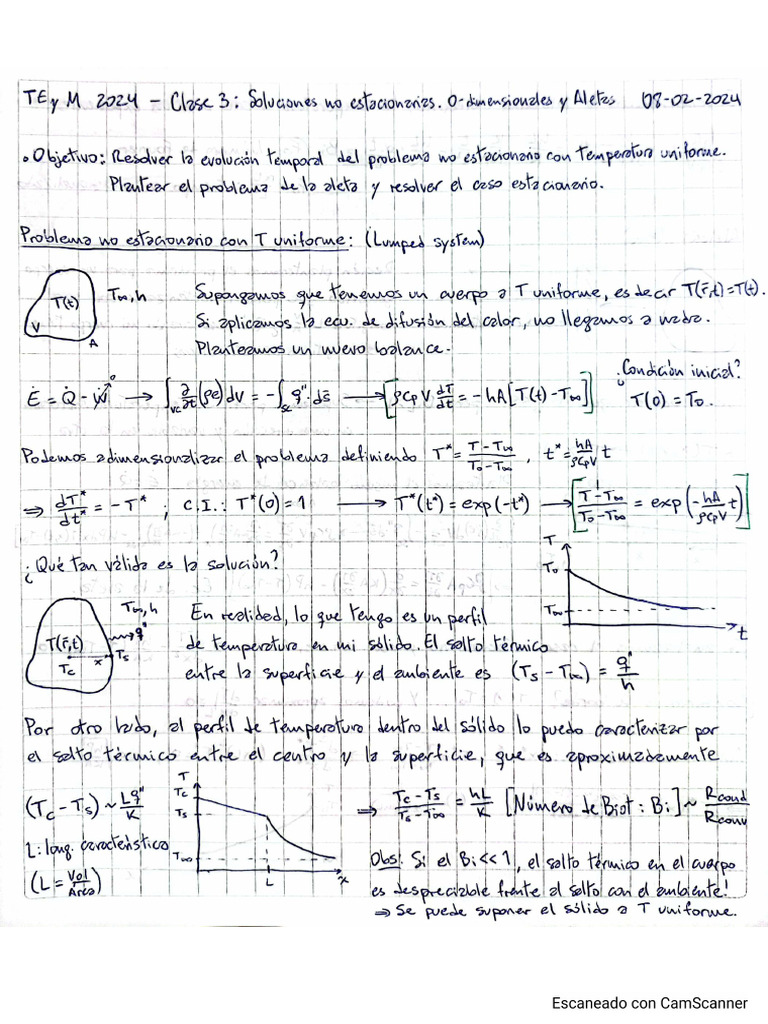 TE y M 2024 - Clase 3: Soluciones no estacionarias. 0-dimensionales y Aletas 08-02-2024
• Objetivo: Resolver la evolución temporal del problema no estacionario con temperatura uniforme.
Plantear el problema de la aleta y resolver el caso estacionario.
Problema no estacionario con T uniforme: (Lumped system)
T(t) V A T∞, h
Supongamos que tenemos un cuerpo a T uniforme, es decir T(r̄,t)=T(t).
Si aplicamos la ecu. de difusión del calor, no llegamos a nada.
Planteamos un nuevo balance.
¿Condición inicial?
Ė = Q̇ - Ẇ⁰ → ∫_VC ∂/∂t (ρe) dV = -∫_SC q̄"·ds̄ → [ρCpV dT/dt = -hA[T(t) - T∞]] T(0) = T₀.
Podemos adimensionalizar el problema definiendo T* = (T - T∞)/(T₀ - T∞), t* = hA/(ρCpV) t
⇒ dT*/dt* = -T* ; C.I.: T*(0) = 1 → T*(t*) = exp(-t*) → [(T - T∞)/(T₀ - T∞) = exp(-hA/(ρCpV) t)]
¿Qué tan válida es la solución?
T T₀ T∞ t
T(r̄,t) Tc x Ts q" T∞, h
En realidad, lo que tengo es un perfil
de temperatura en mi sólido. El salto térmico
entre la superficie y el ambiente es (Ts - T∞) = q"/h
Por otro lado, al perfil de temperatura dentro del sólido lo puedo caracterizar por
el salto térmico entre el centro y la superficie, que es aproximadamente
(Tc - Ts) ~ Lq"/K
T Tc Ts T∞ L x
⇒ (Tc - Ts)/(Ts - T∞) = hL/K [Número de Biot: Bi] ~ Rcond/Rconv
L: long. característica
(L = Vol/Area)
Obs: Si el Bi<<1, el salto térmico en el cuerpo
es despreciable frente al salto con el ambiente!
⇒ Se puede suponer el sólido a T uniforme.
Escaneado con CamScanner